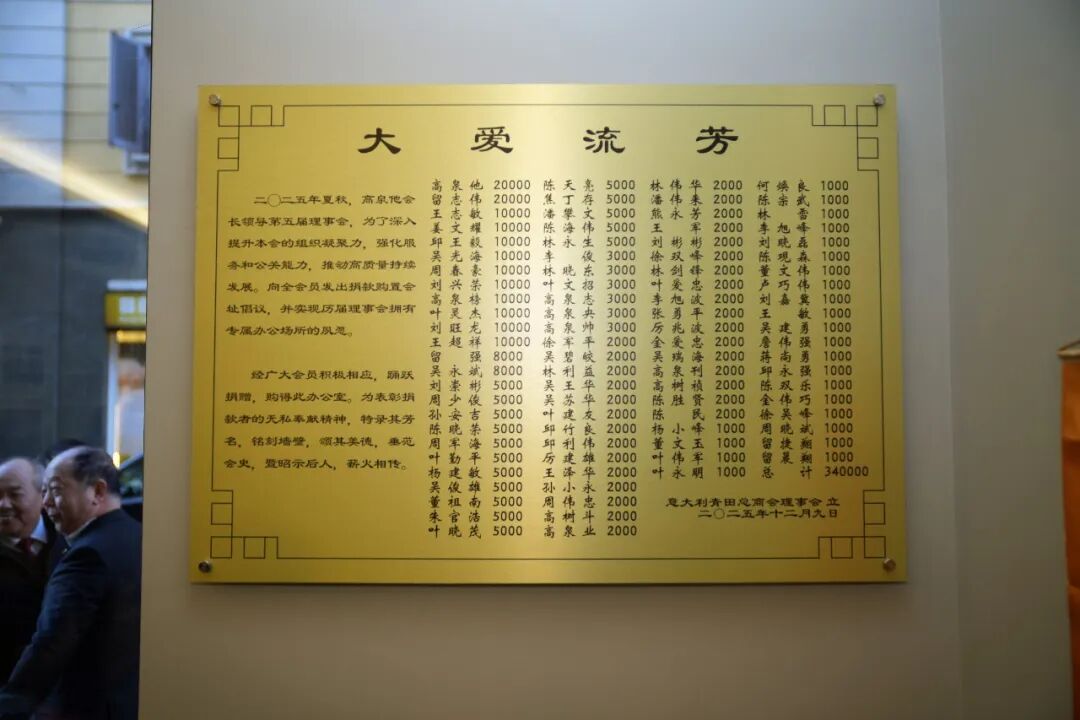 大爱流芳
二〇二五年夏秋，高泉他会
长领导第五届理事会，为了深入
提升本会的组织凝聚力，强化服
务和公关能力，推动高质量持续
发展。向全会员发出捐款购置会
址倡议，并实现历届理事会拥有
专属办公场所的夙愿。
经广大会员积极相应，踊跃
捐赠，购得此办公室。为表彰捐
款者的无私奉献精神，特录其芳
名，铭刻墙壁，颂其美德，垂范
会史，暨昭示后人，薪火相传。
高泉他 20000
留志伟 20000
王志敏 10000
姜文耀 10000
邱王毅 10000
吴光海 10000
周春豪 10000
刘兴荣 10000
高泉榜 10000
叶灵杰 10000
刘旺龙 10000
王超祥 10000
留强 8000
吴永斌 8000
刘崇彬 5000
周少俊 5000
孙安吉 5000
陈晓荣 5000
周军海 5000
叶勤平 5000
杨建敏 5000
吴俊雄 5000
董祖南 5000
朱官浩 5000
叶晓茂 5000
陈天亮 5000
焦丁存 5000
潘攀文 5000
陈海伟 5000
林永生 5000
李俊 3000
林晓东 3000
叶文招 3000
高泉志 3000
高泉央 3000
高泉帅 3000
徐军平 2000
吴碧皎 2000
林利益 2000
吴王华 2000
吴苏华 2000
叶建友 2000
邱竹良 2000
邱利伟 2000
厉建雄 2000
王泽华 2000
孙小永 2000
周伟忠 2000
高树斗 2000
高泉业 2000
林伟华 2000
潘伟来 2000
熊永芳 2000
王军 2000
刘彬彬 2000
徐双峰 2000
林剑锋 2000
叶爱忠 2000
李旭波 2000
张勇平 2000
厉兆波 2000
金爱忠 2000
吴瑞海 2000
高泉利 2000
高树桢 2000
陈胜贤 2000
陈民 2000
杨小峰 1000
董文玉 1000
叶伟军 1000
叶永明 1000
何焕良 1000
陈宗武 1000
林雪 1000
李旭峰 1000
刘晓磊 1000
陈观森 1000
董文伟 1000
卢巧伟 1000
刘嘉冀 1000
王敏 1000
吴建勇 1000
詹伟强 1000
蒋尚勇 1000
邱永强 1000
陈双乐 1000
金伟巧 1000
徐吴峰 1000
周晓斌 1000
留捷翔 1000
留晨翔 1000
总计 340000
意大利青田总商会理事会 立
二〇二五年十二月九日